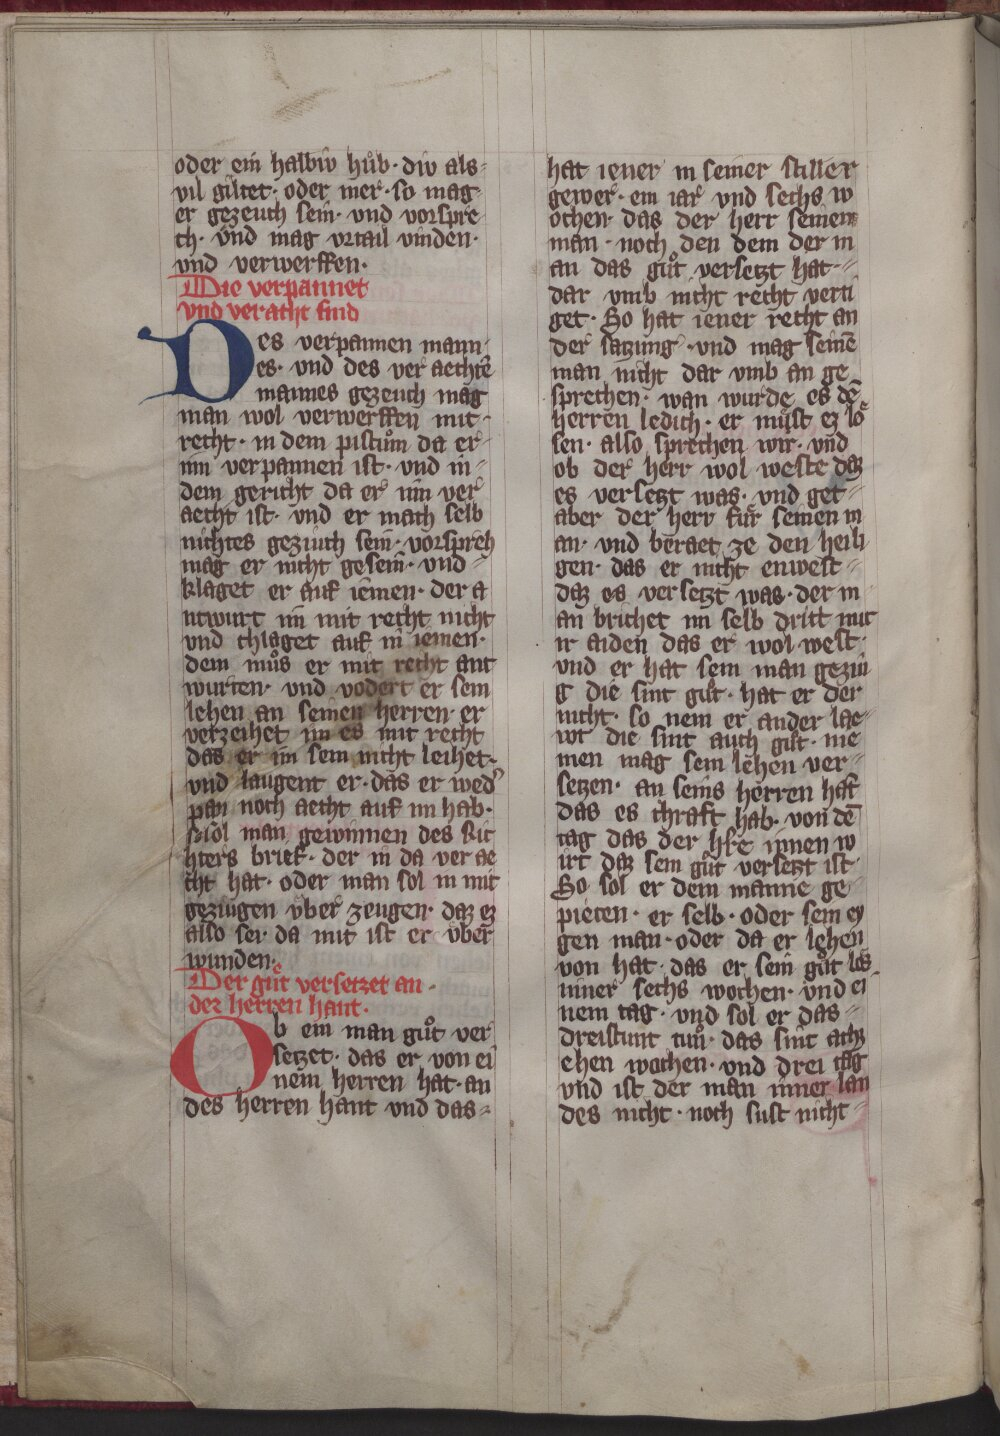 oder ein halbiv hůb · div als-
vil giltet · oder mer · so mag
er gezeuch sein · vnd vorspre
ch · vnd mag vrtail vinden ·
vnd verwerffen ·
Die verpannet
vnd veracht sind
Des verpannen mann
es · vnd des ver aechtē
mannes gezeuch mag
man wol verwerffen mit
recht · in dem pistům da er
inn verpannen ist · vnd in
dem gericht da er inn ver
aecht ist · vnd er mach selb
nichtes geziuch sein · vorspreh
mag er nicht gesein · vnd
klaget er auf iemen · der a
ntwurt im mit recht nicht
vnd chlaget auf in iemen ·
dem můs er mit recht ant
wurten · vnd vodert er sein
lehen an seinen herren · er
verzeihet im es mit recht
das er im sein nicht leihet ·
vnd laugent er · das er wed'
pan noch aecht auf im hab ·
so sol man gewinnen des Ric
hters brief · der in da ver ae
cht hat · oder man sol in mit
geziugen vber zeugen · daz ez
also sei · da mit ist er vber
wunden ·
Der gůt versetzet an
der herren hant ·
Ob ein man gůt ver
setzet · das er von ei
nem herren hat · an
des herren hant vnd das
hat iener in seiner stiller
gewer · ein iar vnd sechs w
ochen · das der herr seinem
man · noch den dem der m
an das gůt versetzt hat
dar vmb nicht recht verti
get · So hat iener recht an
der satzung · vnd mag seinē
man nicht dar vmb an ge
sprechen · wan wurde es dē
herren ledich · er můst ez lo
sen · also sprechen wir · vnd
ob der herr wol weste daz
es versetzt was · vnd get
aber der herr für seinen m
an · vnd beraet ze den heili
gen · das er nicht enwest
daz es versetzt was · der m
an brichet im selb dritt mit
ir aiden das er wol west ·
vnd er hat sein man geziu
g die sint gůt · hat er der
nicht · so nem er ander lae
wt die sint auch gůt · nie
men mag sein lehen ver
setzen · an seins herren hāt
das es chraft hab · von dē
tag das der hre innen w
irt daz sein gůt versetzt ist ·
So sol er dem manne ge
pieten · er selb · oder sein ey
gen man · oder da er lehen
von hat · das er sein gůt lōs
inner sechs wochen · vnd ei
nem tag · vnd sol er das
dreistunt tuͦn · das sint achz
ehen wochen · vnd drei tag
vnd ist der man inner lan
des nicht · noch sust nicht